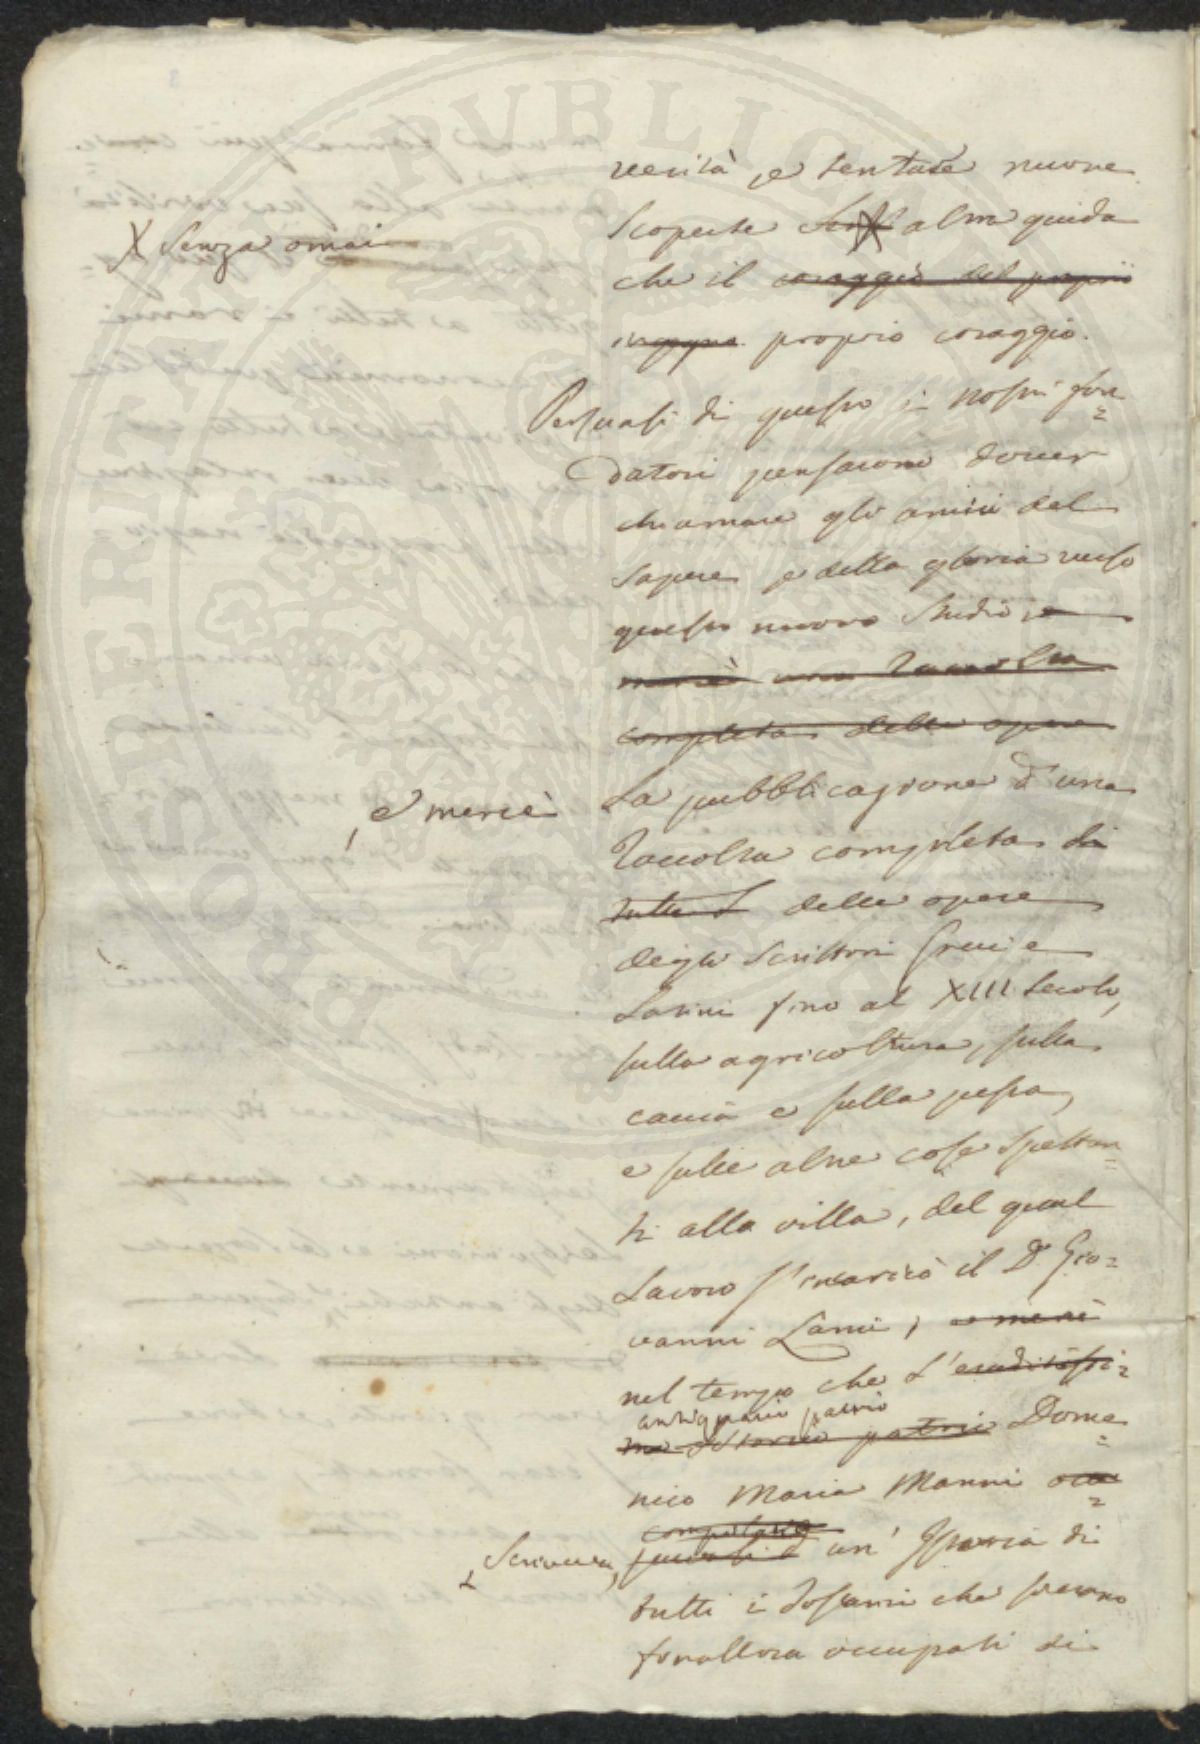 verità, e tentare nuove
X Senza omai
scoperte altra guida
che il coraggio del proprio
ingegno proprio coraggio.
Persuasi di questo i nostri fon=
datori pensarono dover
chiamare gli amici del
sapere e della gloria verso
questo nuovo studio, e
mercè una raccolta
completa delle opere
, e mercè
La pubblicazione d'una
raccolta completa di
tutte l delle opere
degli Scrittori Greci e
Latini fino al XIII secolo,
sulla agricoltura, sulla
caccia e sulla pesca,
e sulle altre cose spettan=
ti alla villa, del qual
Lavoro s'incaricò il Dr. Gio=
vanni Lami, e mercè
nel tempo che l'eruditissi=
antiquario patrio
mo Storico patrio Dome=
nico Maria Manni occ=
compilasse
Scriveva,
un' Istoria di
tutti i Toscani che s'erano
finallora occupati di